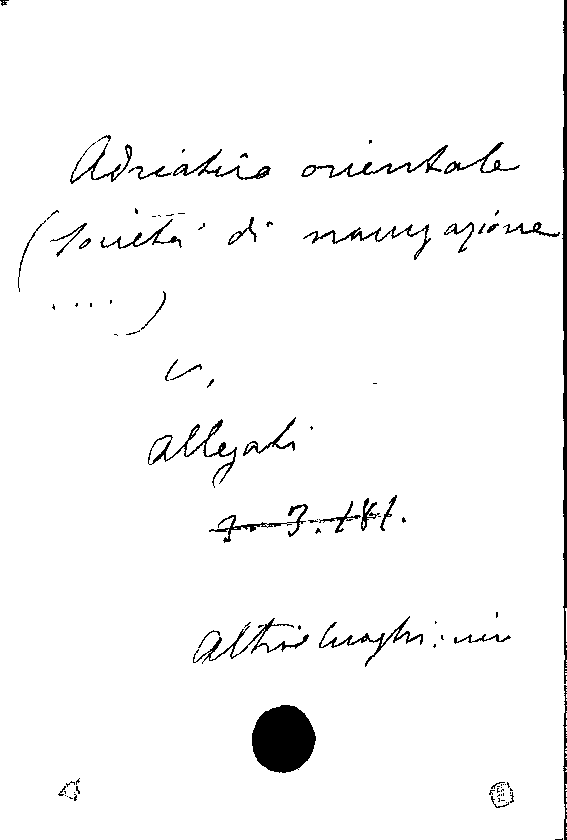 Adriatico orientale
(Società di navigazione
....)
v.
Allegati
3. 181.
Altri luoghi: vi